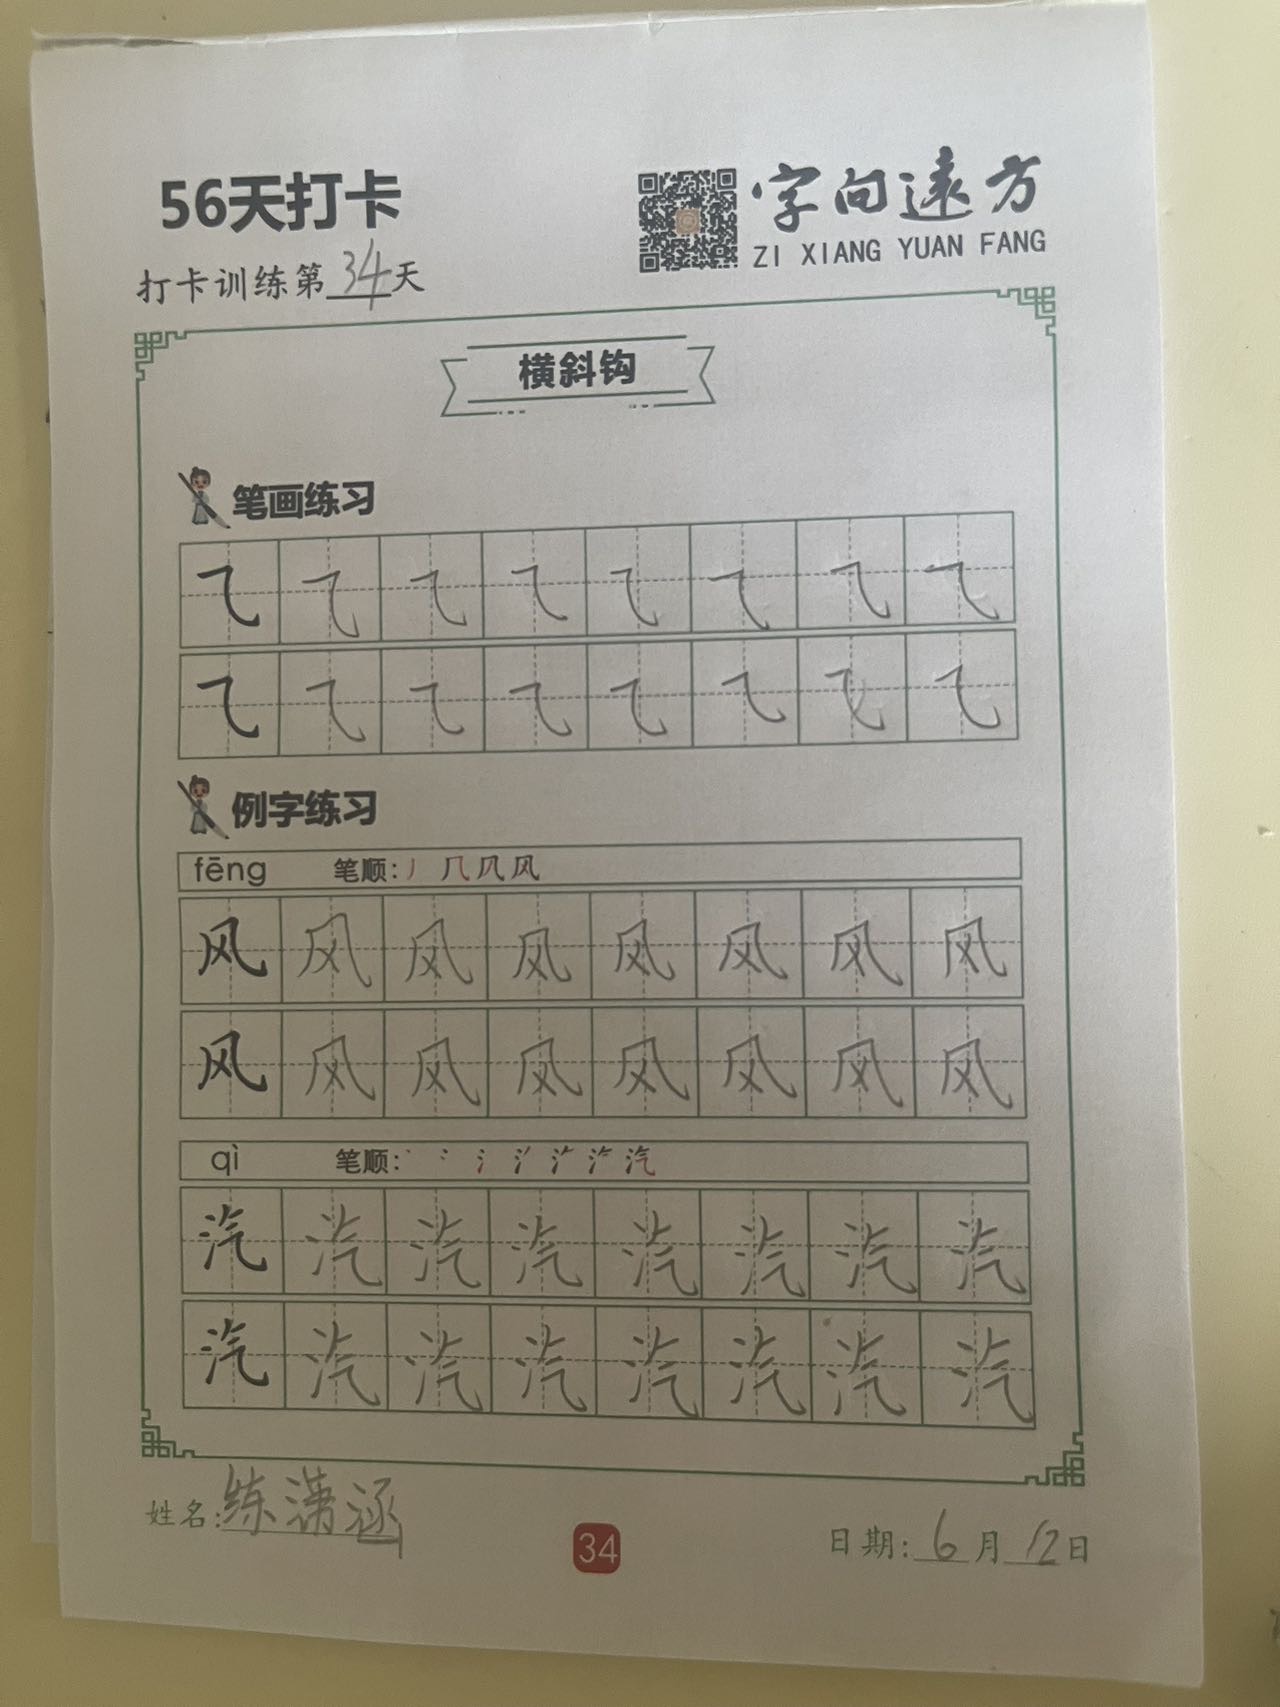 56天打卡
字向遠方
ZI XIANG YUAN FANG
打卡训练第34天
横斜钩
笔画练习
⺄ ⺄ ⺄ ⺄ ⺄ ⺄ ⺄ ⺄
⺄ ⺄ ⺄ ⺄ ⺄ ⺄ ⺄ ⺄
例字练习
fēng 笔顺: 丿 几 凡 风
风 风 风 风 风 风 风 风
风 风 风 风 风 风 风 风
qì 笔顺: 汽
汽 汽 汽 汽 汽 汽 汽 汽
汽 汽 汽 汽 汽 汽 汽 汽
姓名: 练潇涵
34
日期: 6月12日